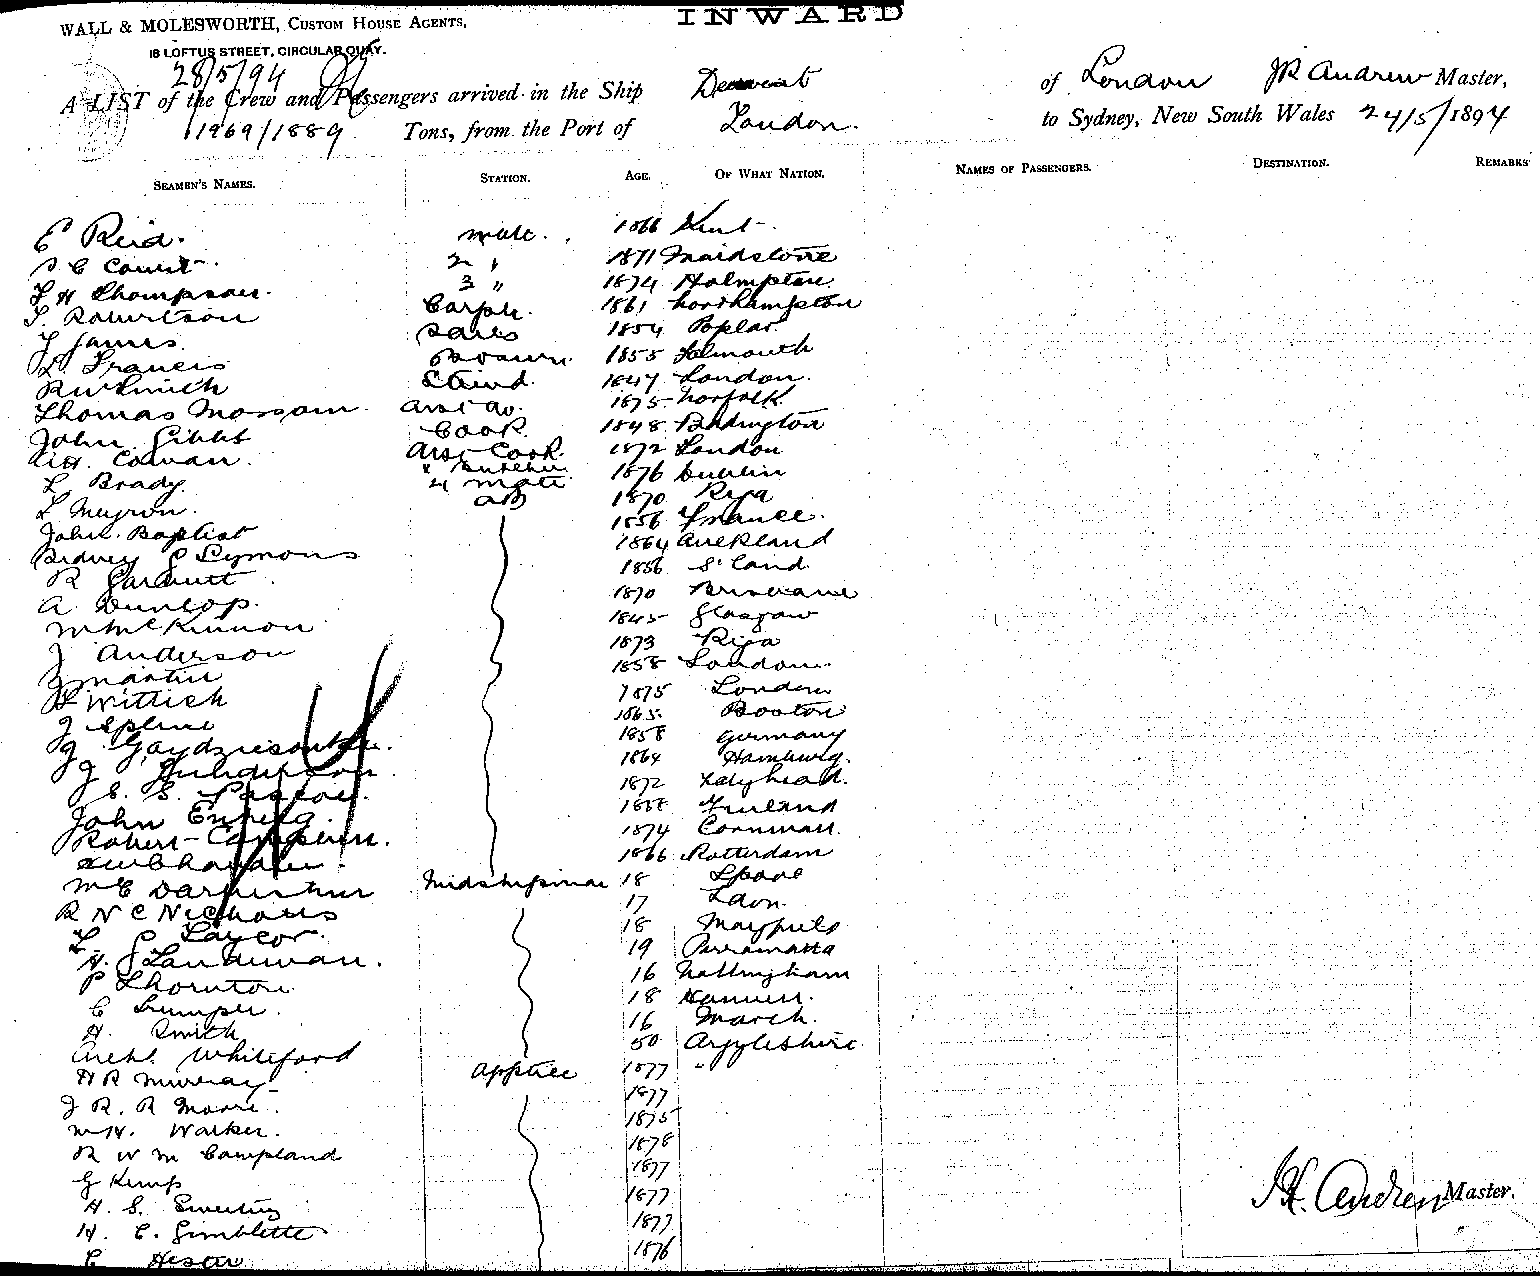 INWARD
WALL & MOLESWORTH, CUSTOM HOUSE AGENTS,
18 LOFTUS STREET, CIRCULAR QUAY.
28/5/94
A LIST of the Crew and Passengers arrived in the Ship Derwent of London JR Andrew Master,
1969/1889 Tons, from the Port of London. to Sydney, New South Wales 24/5/1894
SEAMEN'S NAMES. STATION. AGE. OF WHAT NATION. NAMES OF PASSENGERS. DESTINATION. REMARKS
E Reid. mate. 1866 Kent
2 " 1871 Maidstone
T H Thompson. 3 " 1874 Holmpton
T. Robertson Carptr. 1861 Northampton
J James. 1854 Poplar
Francis 1855 Falmouth
R W Smith Stewd. 1847 London.
Thomas Mossom Asst do. 1875 Norfolk
John Gibbs Cook 1848 Paddington
Cowan. Asst Cook. 1872 London
L Brady. " Butcher 1876 Dublin
L 4 mate 1870 Riga
John Baptist AB 1856 France.
Sidney G Symons 1864 Auckland
R Garbutt 1856 S'land
A Dunlop. 1870 Brisbane
M McKinnon 1845 Glasgow
J Anderson 1873 Riga
J Martin 1858 London.
Wittich 1875 London
J 1865 Boston
J 1858 Germany
J 1864 Hamburg.
J E. S. Pascoe. 1872 Holyhead.
John 1858 Finland
Robert 1874 Cornwall.
1866 Rotterdam
M E Midshipman 18
R N C Nicholls 17 Ldon.
L G Taylor. 18 Mayfield
H. G Landivan. 19 Parramatta
P Thornton 16 Nottingham
C Trumper. 18
H. Smith 16 March.
Archd. Whiteford 50 Argyleshire
H R Murray apptice 1877 "
J R. R Moore. 1877
W H. Walker. 1875
R W M Campland 1878
G Kemp 1877
H. S. Sweeting 1877
H. C. Gimblette 1877
C Hester 1876
JR Andrew Master.